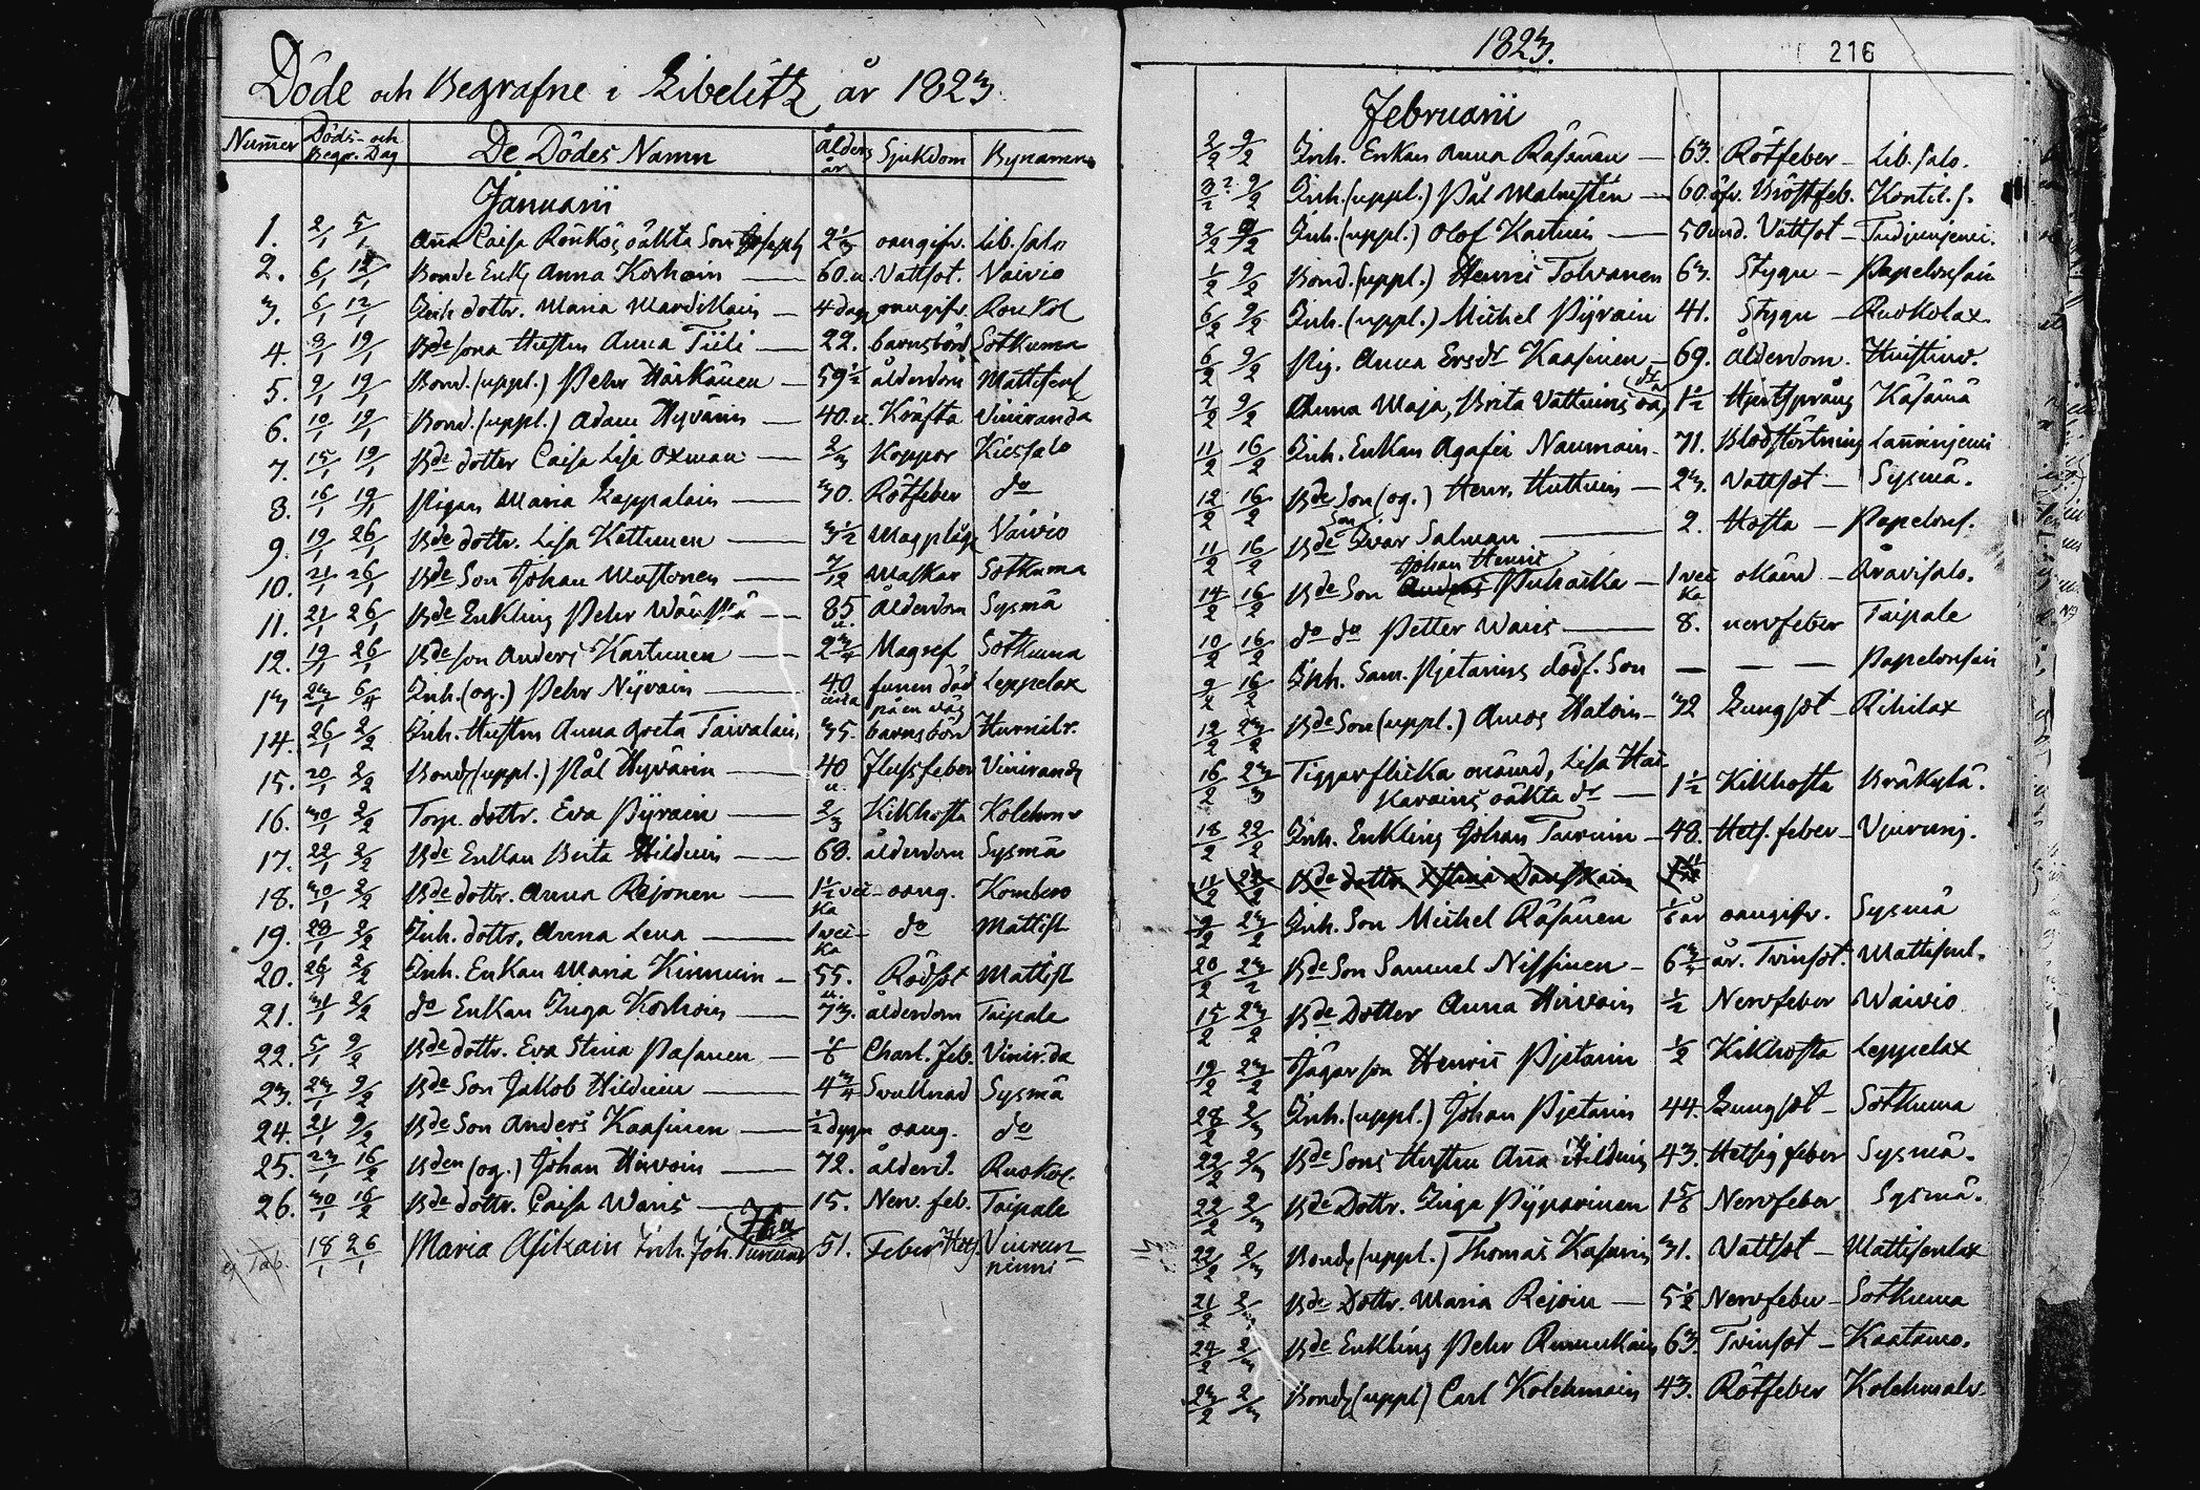 Döde och Begrafne i Libelitz år 1823.
Nummer Döds- och Begr. Dag De Dödes Namn Ålders år Sjukdom Bynamn
Januarii
1. 2/1 5/1 Anna Caisa Rönkös oäkta Son Joseph 2 1/3 oangifv. Lib. salo
2. 6/1 12/1 Bonde Enk. Anna Korhoin — 60. u. Vattsot. Vaivio
3. 6/1 12/1 Inh dottr. Maria Mardikain — 4 dagar oangifv. Roukol
4. 9/1 19/1 Bde sona Hustru Anna Tiili — 22. barnsbörd Sotkuma
5. 9/1 19/1 Bond. (uppl.) Pehr Härkönen — 59 1/2 ålderdom Mattisenl
6. 10/1 19/1 Bond. (uppl.) Adam Hyvärin — 40. u. Kräfta Viniranda
7. 15/1 19/1 Bde dotter Caisa Lisa Oxman — 2/3 Koppor Kiessalo
8. 16/1 19/1 Pigan Maria Lappalain — 30. Rötfeber do
9. 19/1 26/1 Bde dottr. Lisa Kettunen — 3 1/2 Magplåga Vaivio
10. 21/1 26/1 Bde Son Johan Mustonen — 7/12 Maskar Sotkuma
11. 21/1 26/1 Bde Enkling Pehr Wänskä — 85 u. Ålderdom Sysmä
12. 19/1 26/1 Bde son Anders Kartunen — 2 3/4 Magref Sotkuma
13 23/1 6/4 Inh. (og.) Pehr Nyrain — 40 funen död på en väg Leppelax
14. 26/1 2/2 Inh. Hustru Anna Greta Taivalain 35. barnsbörd Hurnikr.
15. 20/1 2/2 Bond. (uppl.) Pål Hyvärin — 40 u. Flussfeber Viniranda
16. 30/1 2/2 Torp. dottr. Eva Pyrain — 2/3 Kikhosta Kolehm
17. 22/1 2/2 Bde Enkan Brita Hilduin — 68. ålderdom Sysmä
18. 30/1 2/2 Bde dottr. Anna Rejonen — 1 1/2 vecka oang. Kombero
19. 29/1 2/2 Inh. dottr. Anna Lena — 1 vecka do Mattisl
20. 26/1 2/2 Inh. Enkan Maria Kinnuin — 55. u. Rödsot Mattisl
21. 31/1 2/2 do Enkan Inga Korhoin — 73. ålderdom Taipale
22. 5/1 9/2 Bde dottr. Eva Stina Pasanen — 1/6 Charl. Feb. Vinir.da
23. 23/1 9/2 Bde Son Jakob Hilduin — 4 3/4 Svullnad Sysmä
24. 21/1 9/2 Bde Son Anders Kaasinen — 1/2 dygn oang. do
25. 23/1 16/2 Bden (og.) Johan Hirvoin — 72. ålderd. Ruokol.
26. 30/1 16/2 Bde dottr. Caisa Waris — 15. Nerv. feb. Taipale
ej Tab. 18/1 26/1 Maria Asikain Inh. Joh. Turunens Hu 51. Feber Hets. Viurunniemi
1823.
216
Februarii
2/2 9/2 Inh. Enkan Anna Räsänen — 63. Rötfeber — Lib. salo.
3/2 9/2 Inh. (uppl.) Pål Malmstén — 60. öfv. Bröstfeb. Kontil. s.
2/2 9/2 Inh. (uppl.) Olof Kartuin — 50 und. Vattsot
1/2 9/2 Bond. (uppl.) Henric Tolvanen 63. Stygn — Papelonsaari
6/2 9/2 Inh. (uppl.) Michel Pyrain 41. Stygn — Ruokolax.
6/2 9/2 Pig. Anna Ersdr Kaasinen — 69. Ålderdom.
7/2 9/2 Anna Maja, Brita Vattuins oä. dr 1 1/2 Hjertsprång Käsämä
11/2 16/2 Inh. Enkan Agafei Naumain — 71. Blodstörtning Lannanjemi
12/2 16/2 Bde Son (og.) Henr. Huttuin — 23. Vattsot — Sysmä.
11/2 16/2 Bde Son Ivar Salman — 2. Hosta — Papelons.
14/2 16/2 Bde Son Johan Henric Puhakka — 1 vecka okänd — Aravisalo.
10/2 16/2 do do Petter Waris — 8. nervfeber Taipale
9/2 16/2 Inh. Sam. Pjetarins dödf. Son — — — Papelonsaari
12/2 23/2 Bde Son (uppl.) Amos Haloin — 32 Lungsot — Rihilax
16/2 23/2 Tiggarflicka onämd, Lisa Hackarains oäkta dr — 1 1/2 Kikhosta Bräkylä.
18/2 22/2 Inh. Enkling Johan Turuin — 48. Hets. feber — Vjurunj.
11/2 23/2 Bde dottr. Stina Danskain
9/2 23/2 Inh. Son Michel Räsänen 1/6 år oangifv. Sysmä
20/2 23/2 Bde Son Samuel Nissinen — 6 3/4 år. Tvinsot. Mattisenl.
15/2 23/2 Bde Dotter Anna Hirvoin 1/2 Nervfeber Waivio
19/2 23/2 Jägar son Henric Pjetarin 1/2 Kikhosta Leppelax
28/2 2/3 Inh. (uppl.) Johan Pjetarin 44. Lungsot — Sotkuma
22/2 2/3 Bde Sons Hustru Anna Hilduin 43. Hetsig feber Sysmä.
22/2 2/3 Bde Dottr. Inga Pyparinen 1 5/6 Nervfeber Sysmä.
22/2 2/3 Bond. (uppl.) Thomas Kasurin 31. Vattsot — Mattisenlax
21/2 2/3 Bde Dottr. Maria Rejoin — 5 1/2 Nervfeber — Sotkuma
24/2 2/3 Bde Enkling Pehr Rummukain 63. Tvinsot — Kaatamo.
23/2 2/3 Bond. (uppl) Carl Kolehmain 43. Rötfeber Kolehmala